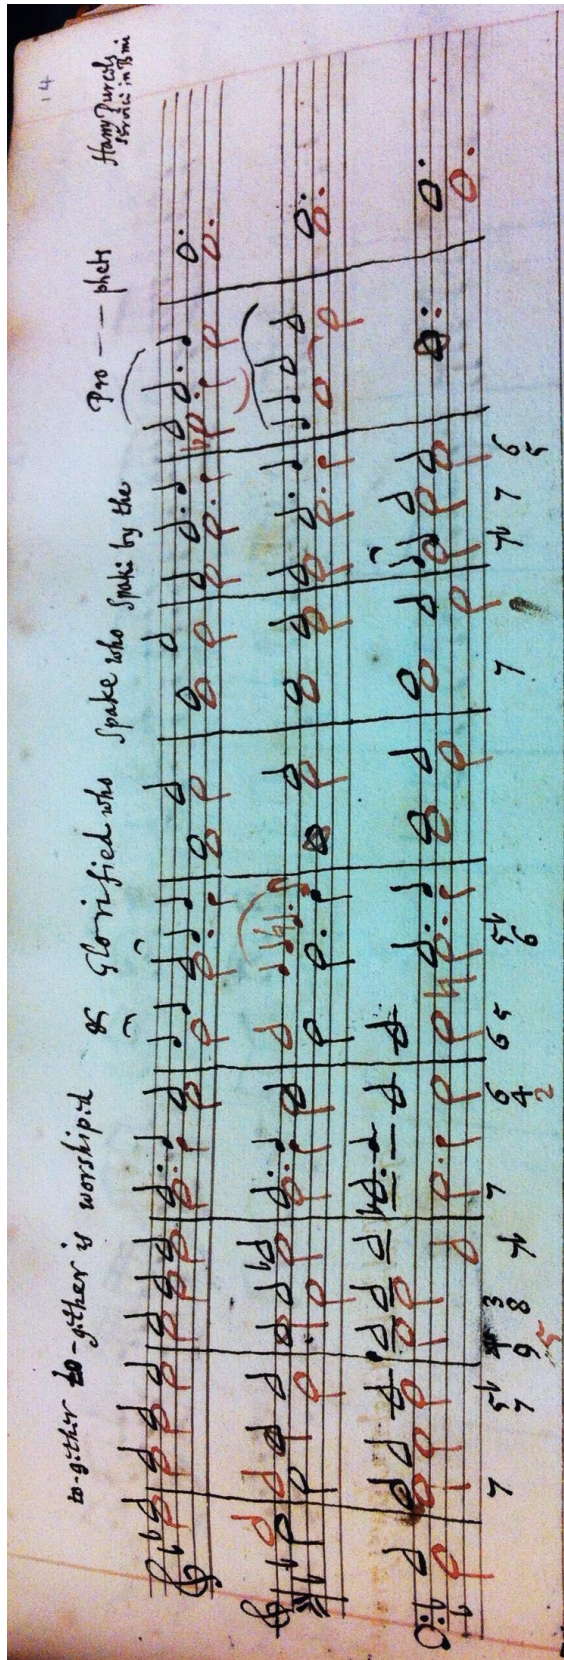 14
Harry Purcels
Service in B mi
to-gither to-gither is worshipid & Glorified who Spake who Spake by the Pro - - phets
7 7 5♭ 9 4 8 3 7♭ 7 6 4 2 6 5 6 5♭ 7 7♭ 7 6 5